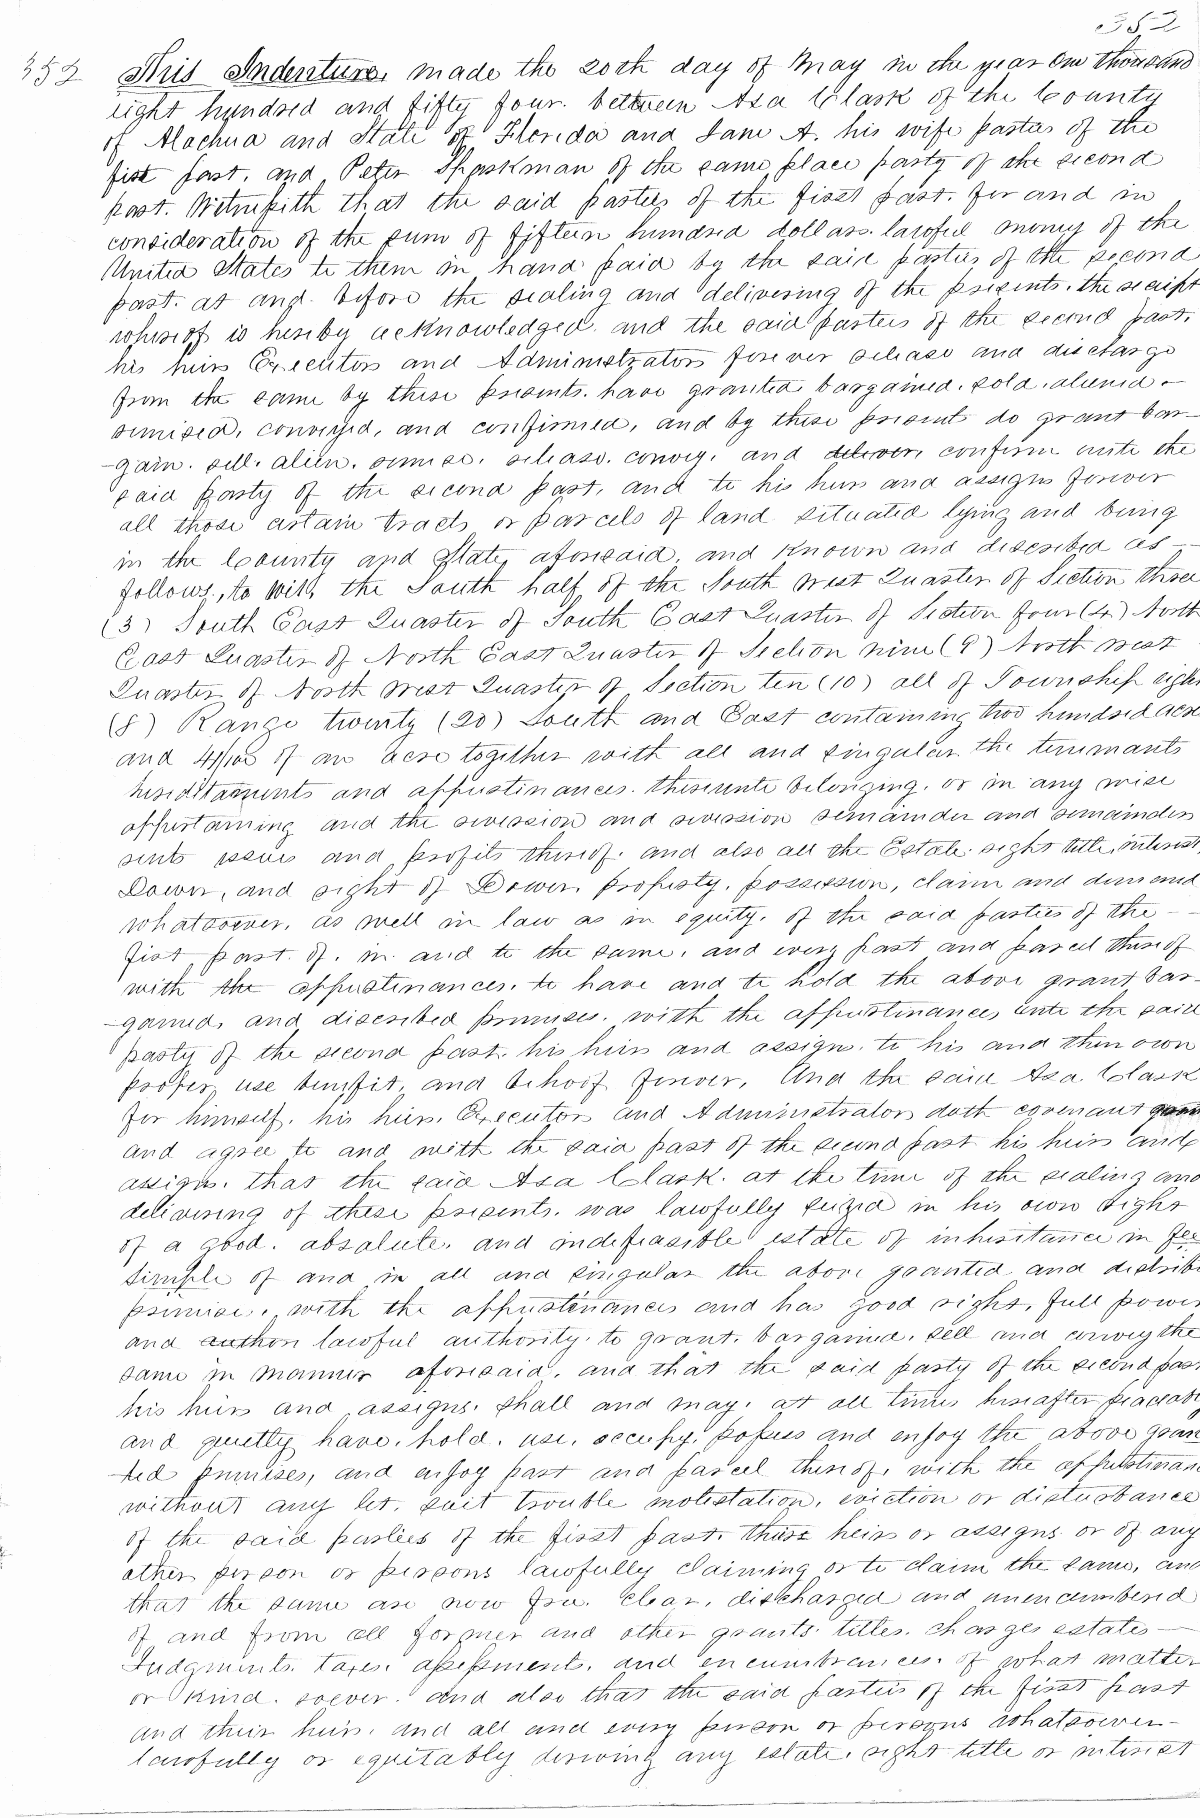 352
352 This Indenture, made the 20th day of May in the year one thousand
eight hundred and fifty four. between Asa Clark of the County
of Alachua and State of Florida and Jane A. his wife parties of the
fist part, and Peter Sparkman of the same place party of the second
part. Witnesseth that the said parties of the first part. for and in
consideration of the sum of fifteen hundred dollars. lawful money of the
United States to them in hand paid by the said parties of the second
part. at and. before the sealing and delivering of the presents. the receipt
whereof is hereby acknowledged. and the said parties of the second part,
his heirs Executors and Administrators forever release and discharge
from the same by these presents. have granted bargained. sold. aliened -
remised, conveyed, and confirmed, and by these present do grant bar-
-gain. sell. alien. remise. release. convey. and deliver, confirm unto the
said party of the second part, and to his heirs and assigns forever
all those certain tracts or parcels of land situated lying and being
in the County and State, aforesaid, and known and described as -
follows, to wit, the South half of the South West Quarter of Section three
(3) South East Quarter of South East Quarter of Section four (4) North
East Quarter of North East Quarter of Section nine (9) North West
Quarter of North West Quarter of Section ten (10) all of Township eight
(8) Range twenty (20) South and East containing two hundred acre
and 4/100 of an acre together with all and singular the tenemants
hereditaments and appurtinances. thereunto belonging. or in any wise
appertaining and the reversion and reversion remainder and remainders
rents issues and profits thereof. and also all the Estate. right title, interest,
Dower, and right of Dower, property, possession, claim and demand
whatsoever, as well in law as in equity. of the said parties of the - -
fist part. of. in. and to the same, and every part and parcel thereof
with the appurtinances. to have and to hold the above grant, bar-
-gained, and discribed premises. with the appurtinances unto the said
party of the second part. his heirs and assigns. to his and their own
proper, use benifit, and behoof forever, And the said Asa Clark
for himself, his heirs, Executors and Administrators doth covenant
and agree to and with the said part of the second part his heirs and
assigns. that the said Asa Clark. at the time of the sealing and
delivering of these presents. was lawfully seized in his own right
of a good. absolute. and indefeasible estate of inheritance in fee
simple of and in all and singular the above granted and distribe
premise, with the appurtinances and has good right, full power
and author lawful authority. to grant. bargained. sell and convey the
same in manner aforesaid, and that the said party of the second part
his heirs and assigns. shall and may. at all times hereafter peaceably
and quietly have. hold. use. occupy. possess and enjoy the above gran
-ted premises, and enjoy part and parcel thereof, with the appurtinan
without any let. suit trouble molestation, eviction or disturbance
of the said parties of the first part. their heirs or assigns or of any
other person or persons lawfully claiming or to claim the same, and
that the same are now free. clear, discharged and unencumbered
of and from all former and other grants titles. charges estates -
Judgments. taxes. assessments. and encumbrances. of what matter
or kind. soever. and also that the said parties of the first part
and their heirs. and all and every person or persons whatsoever -
lawfully or equitably deriving any estate. right title or interest